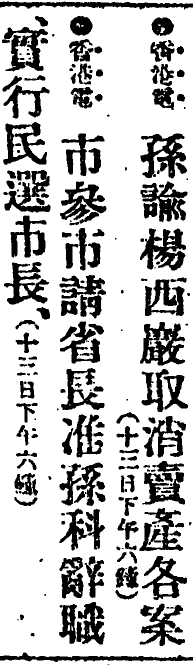 ◉香港電 孫諭楊西巖取消賣產各案(十三日下午六鐘)
◉香港電 市參市請省長准孫科辭職
實行民選市長、(十三日下午六鐘)